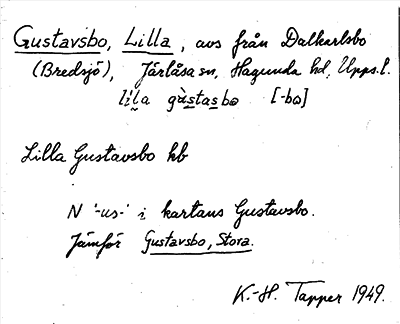 Gustavsbo, Lilla, avs från Dalkarlsbo
(Bredsjö), Järlåsa sn, Hagunda hd, Upps. l.
lila gùstasbo [-bo]
Lilla Gustavsbo hb
N '-us-' i kartans Gustavsbo.
Jämför Gustavsbo, Stora.
K.-H. Tapper 1949.